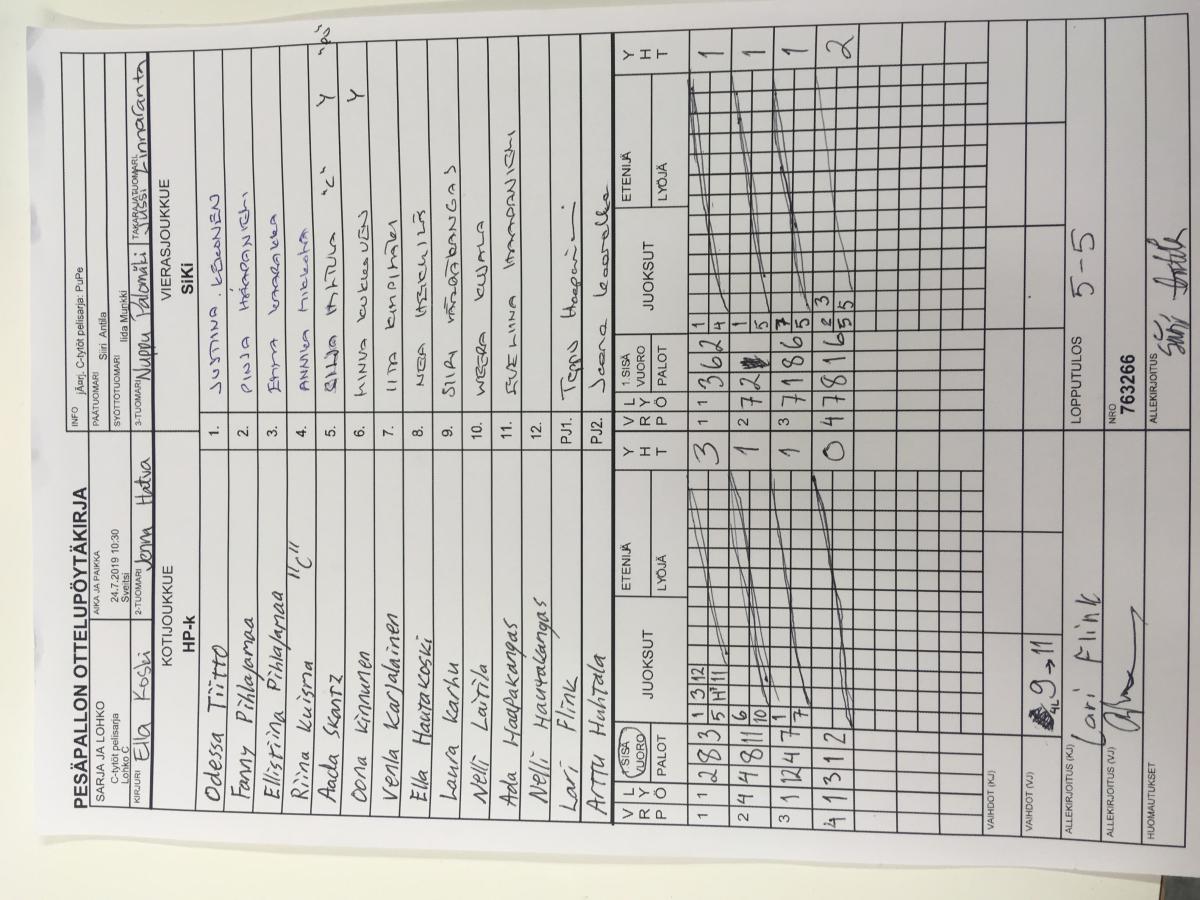 PESÄPALLON OTTELUPÖYTÄKIRJA
SARJA JA LOHKO
C-tytöt pelisarja
Lohko C
AIKA JA PAIKKA
24.7.2019 10:30
Sveitsi
INFO jÄarj. C-tytöt pelisarja: PuPe
PÄÄTUOMARI Siiri Antila
SYÖTTÖTUOMARI Iida Munkki
KIRJURI Ella Koski
2-TUOMARI Jenna Hatva
3-TUOMARI Nuppu Palomäki
TAKARAJATUOMARI Jussi Linnaranta
KOTIJOUKKUE
HP-k
VIERASJOUKKUE
SiKi
Odessa Tiitto 1. JUSTIINA KEKONEN
Fanny Pihlajamaa 2. PINJA HAAPANIEMI
Ellistiina Pihlajamaa 3. EMMA KAARAKKA
Riina Kuisma "C" 4. ANNIKA MIKKOLA
Aada Skantz 5. "C" Y
Oona Kinnunen 6. Y
Venla Karjalainen 7. IITA
Ella Hautakoski 8. NEA HEIKKILÄ
Laura Karhu 9. SIIRI
Nelli Laitila 10. WEERA KUJALA
Ada Haapakangas 11. EVELIINA HAAPANIEMI
Nelli Hautakangas 12.
Lari Flink PJ1. Teppo Haapaniemi
Arttu Huhtala PJ2. Jaana
V R P L Y Ö 1.SISÄ VUORO PALOT JUOKSUT ETENIJÄ LYÖJÄ Y H T
V R P L Y Ö 1.SISÄ VUORO PALOT JUOKSUT ETENIJÄ LYÖJÄ Y H T
1 1 2 8 3 1 3 12 3 1 1 3 6 2 1 1
5 11 4
2 4 4 8 11 6 1 2 7 2 1 1
10 5
3 1 12 4 7 1 1 3 7 1 8 6 7 1
7 5
4 1 3 1 2 0 4 7 8 1 6 2 3 2
5 5
VAIHDOT (KJ)
VAIHDOT (VJ) 9 → 11
ALLEKIRJOITUS (KJ) Lari Flink
LOPPUTULOS 5-5
ALLEKIRJOITUS (VJ)
NRO
763266
HUOMAUTUKSET
ALLEKIRJOITUS Siiri Antila